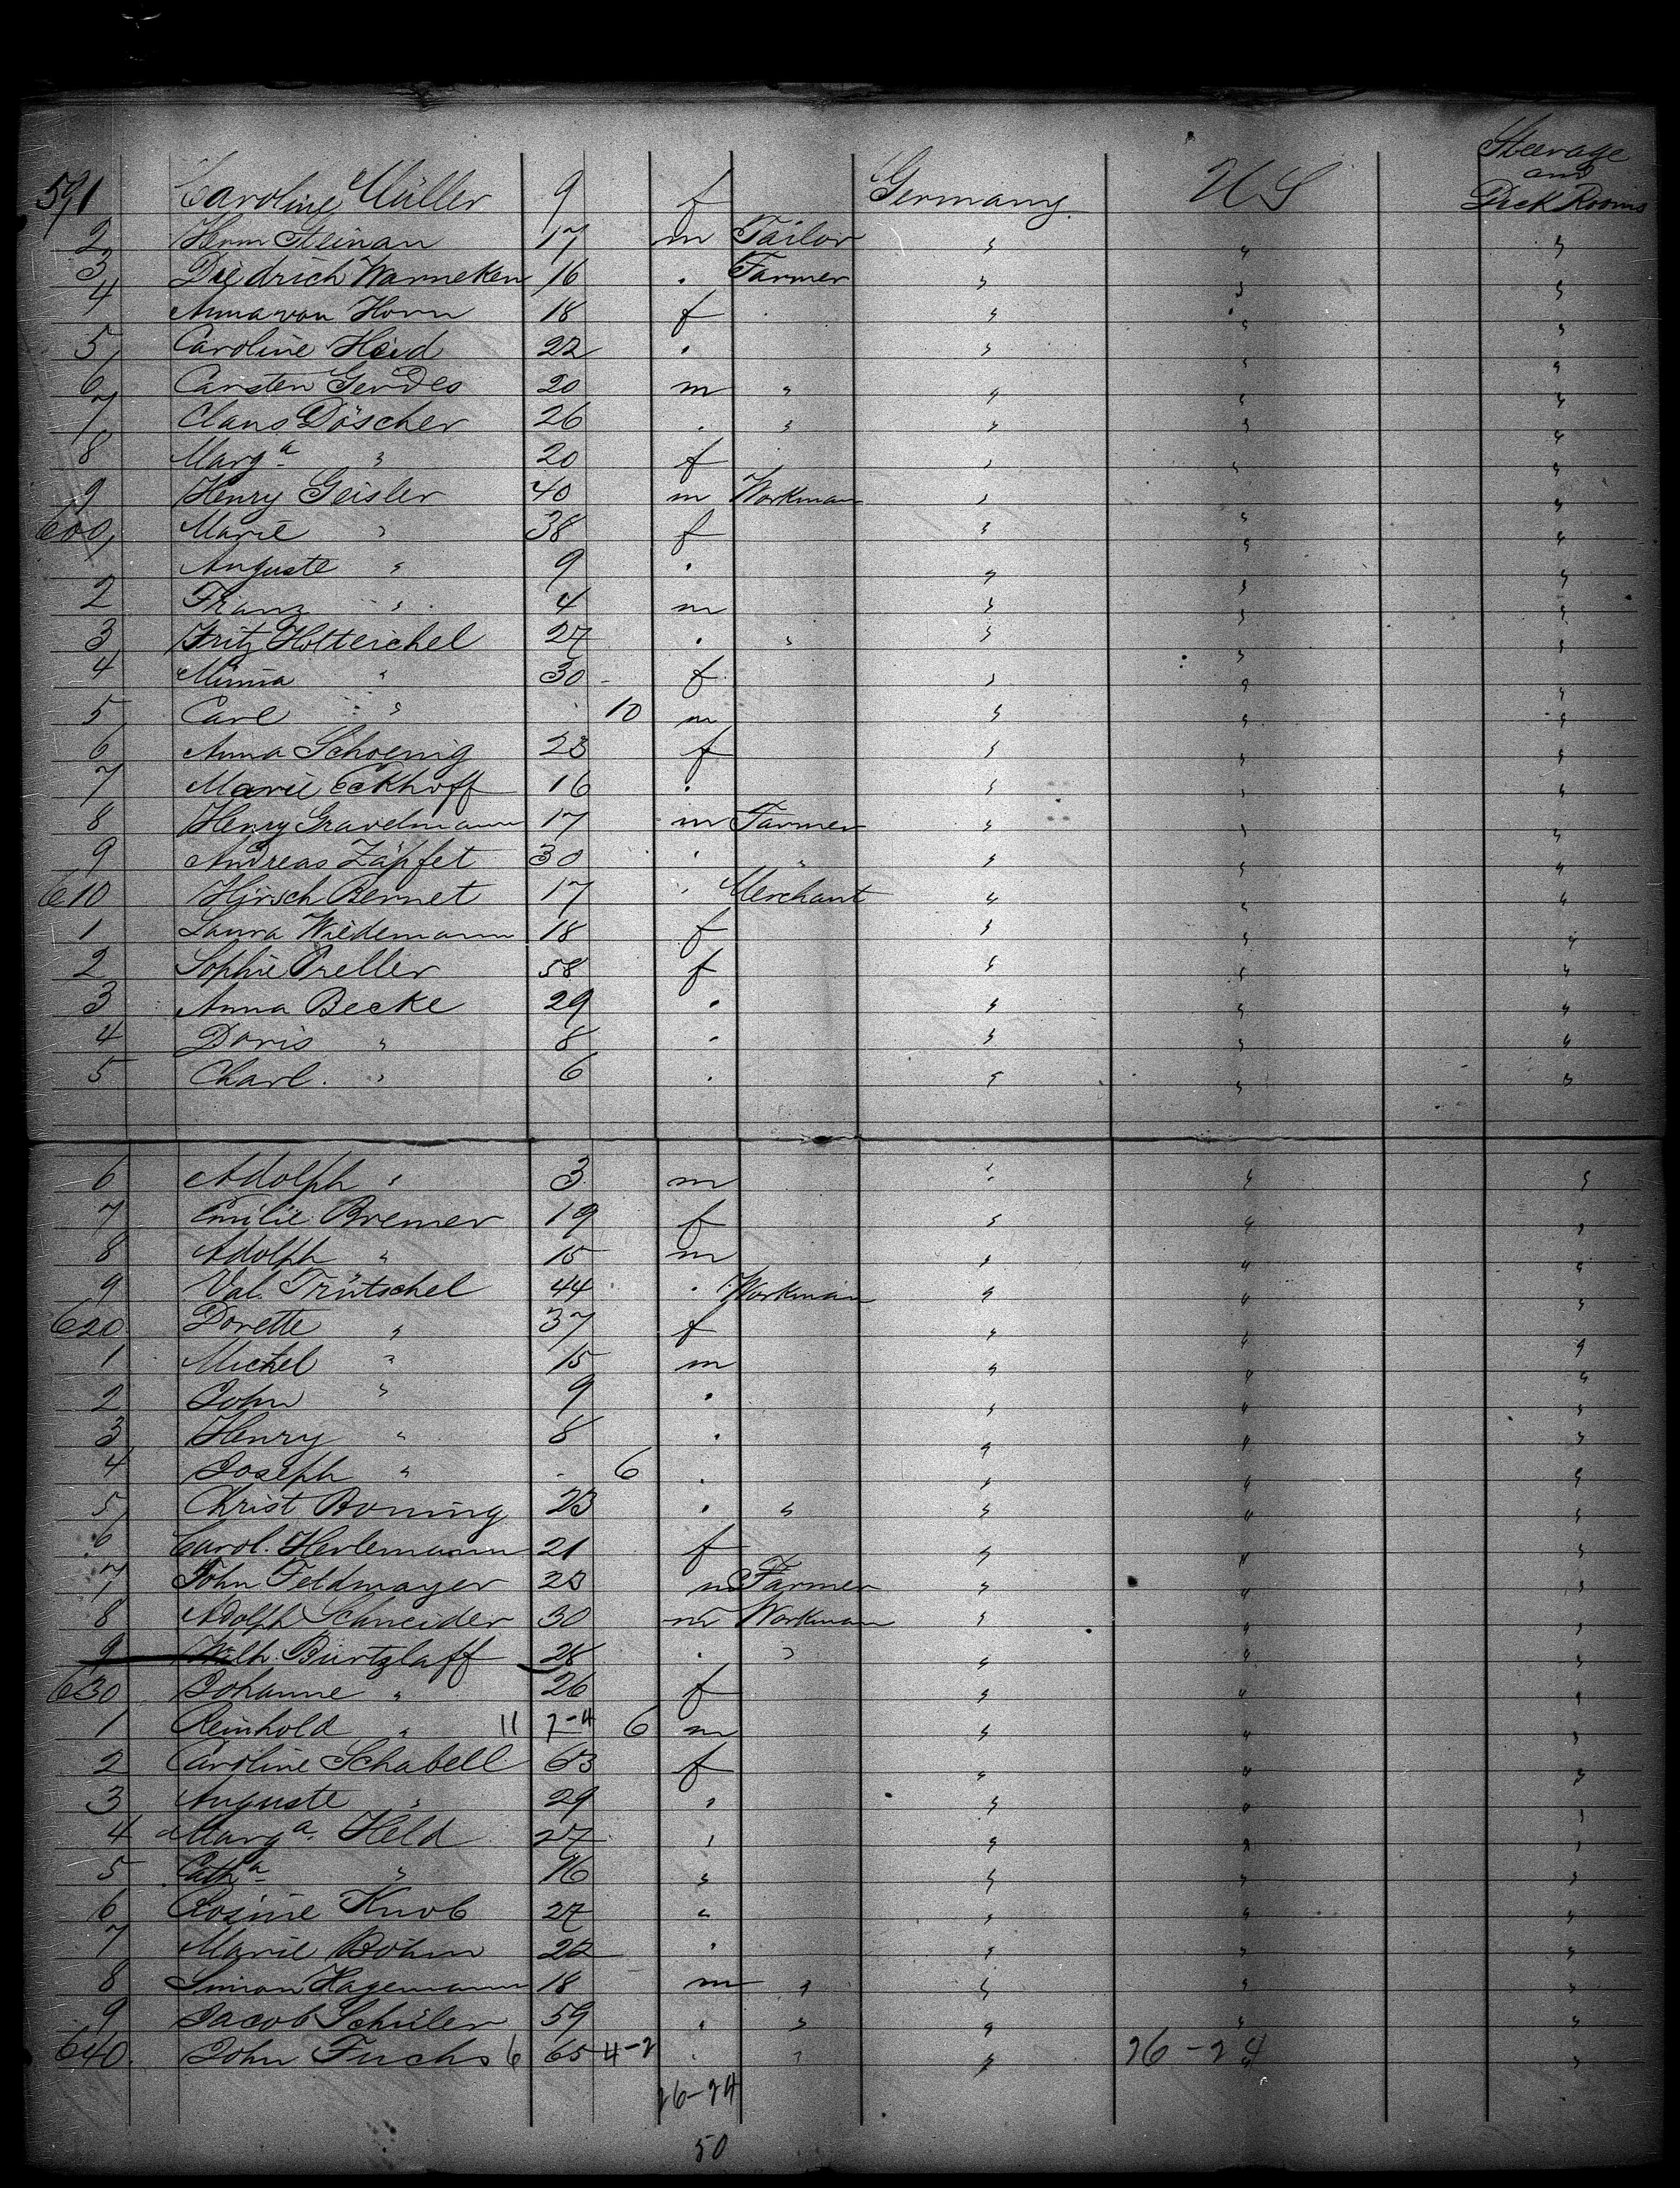 Steerage
and
591 Caroline Müller 9 f Germany U S Deck Rooms
2 Herm Steinan 17 m Tailor " " "
3 Diedrich Warneken 16 " Farmer " " "
4 Anna von Horn 18 f " " "
5 Caroline Heid 22 " " " "
6 Carsten Gerdes 20 m " " " "
7 Claus Döscher 26 " " " " "
8 Marga " 20 f " " "
9 Henry Geisler 40 m Workman " " "
600 Marie " 38 f " " "
Auguste " 9 " " " "
2 Franz " 4 m " " "
3 Fritz Holteichel 27 " " " " "
4 Minna " 30 f " " "
5 Carl " 10 m " " "
6 Anna Schoenig 23 f " " "
7 Marie Eckhoff 16 " " " "
8 Henry Gravelmann 17 m Farmer " " "
9 Andreas Zäpfet 30 " " " " "
610 Hirsch Bernet 17 " Merchant " " "
1 Laura Wiedemann 18 f " " "
2 Sophie Preller 58 f " " "
3 Anna Becke 29 " " " "
4 Doris " 8 " " " "
5 Charl. " 6 " " " "
6 Adolph " 3 m " " "
7 Emilie Bremer 19 f " " "
8 Adolph " 15 m " " "
9 Val. Trütschel 44 " Workman " " "
620 Dorette " 37 f " " "
1 Michel " 15 m " " "
2 John " 9 " " " "
3 Henry " 8 " " " "
4 Joseph " 6 " " " "
5 Christ Boning 23 " " " " "
6 Carol. Herlemann 21 f " " "
7 John Feldmayer 23 m Farmer " " "
8 Adolph Schneider 30 m Workman " " "
9 Wilh. Burtzlaff 28 " " " " "
630 Johanne " 26 f " " "
1 Reinhold " 11 7-4 6 m " " "
2 Caroline Schabell 63 f " " "
3 Auguste " 29 " " " "
4 Marga. Held 27 " " " "
5 Catha " 16 " " " "
6 Rosine Knob 27 " " " "
7 Marie Böhm 22 " " " "
8 Simon Hagemann 18 m " " " "
9 Jacob Schüler 59 " " " " "
640 John Fuchs 6 65 4-2 " " " 26-24 "
26-24
50